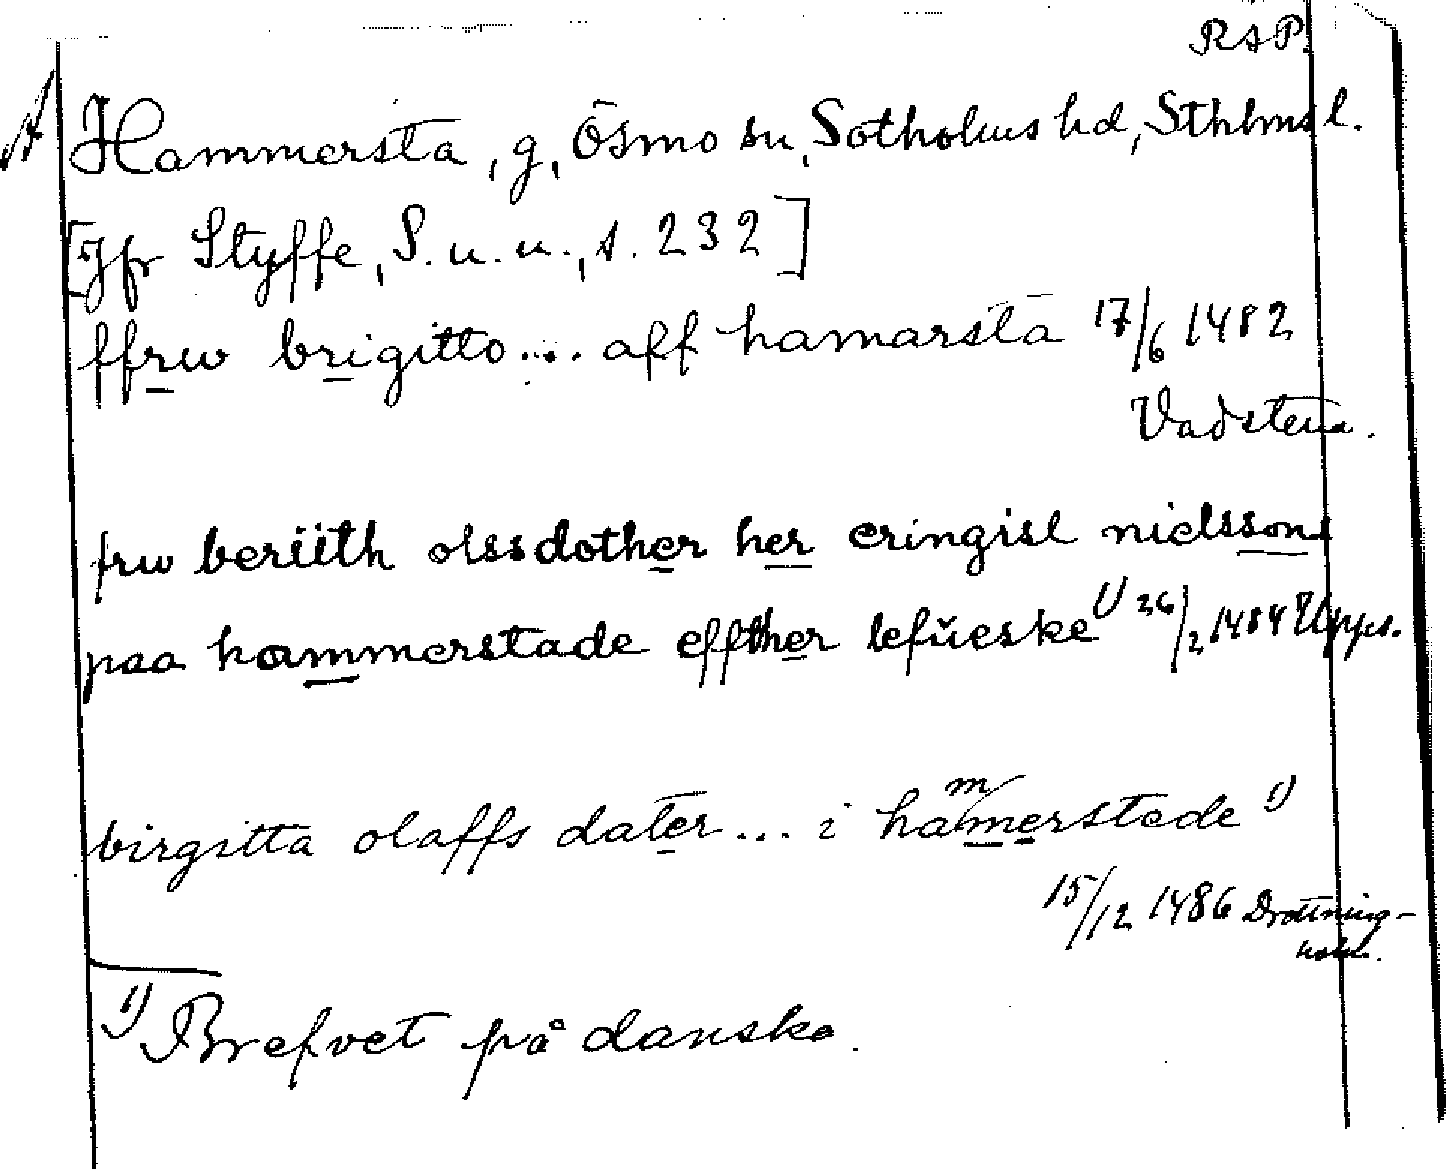 RAP.
A Hammersta, g, Ösmo sn, Sotholms hd, Sthlms l.
[Jfr Styffe, S. u. u., s. 232]
ffrw brigitto... aff hamarsta 17/6 1482
Vadstena.
frw beriith olssdother her eringisl nielssons
paa hammerstade effther lefüeske 1) 26/2 1484 Upps.
birgitta olaffs dater... i hammerstede 1)
15/12 1486 Drottning-
holm.
1) Brefvet på danska.